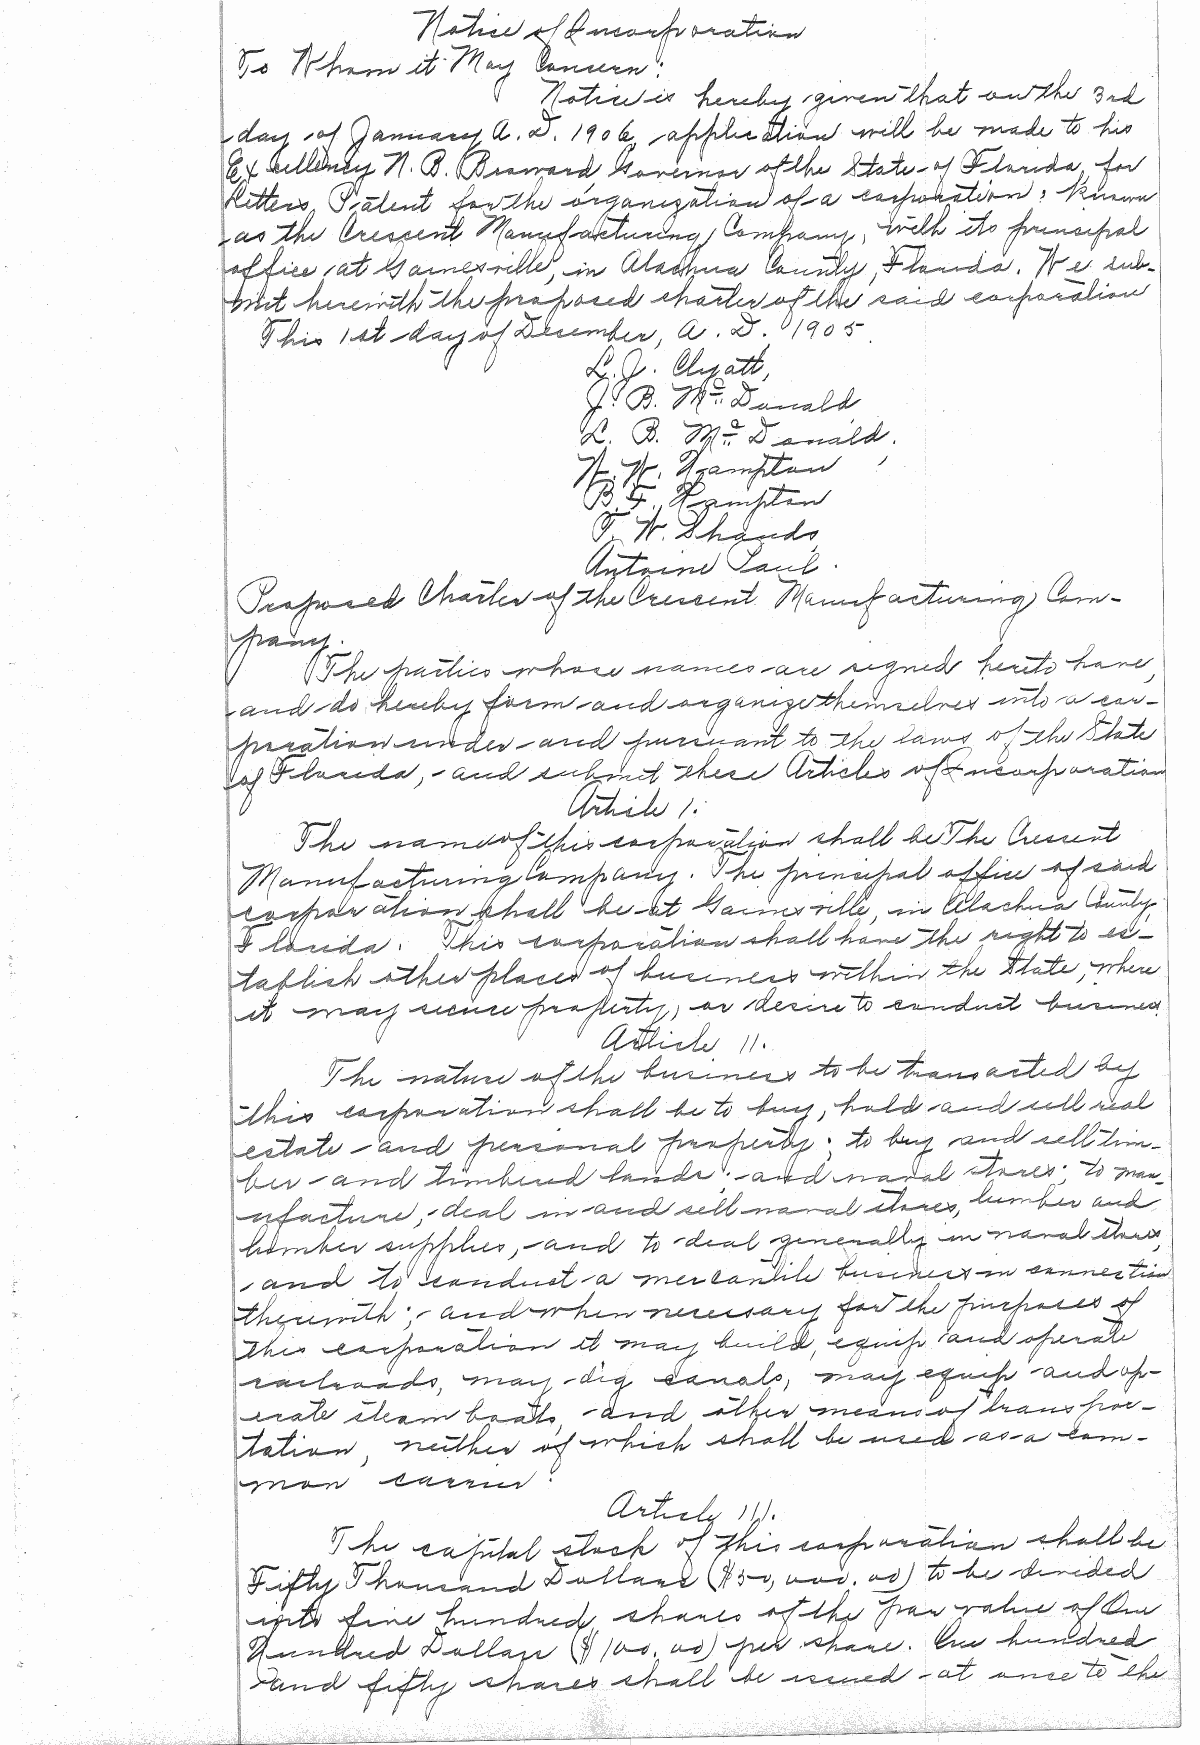 Notice of Incorporation
To Whom it May Concern:
Notice is hereby given that on the 3rd
day of January A. D. 1906, application will be made to his
Excellency N. B. Broward, Governor of the State of Florida, for
Letters Patent for the organization of a corporation, known
as the Crescent Manufacturing Company, with its principal
office at Gainesville, in Alachua County, Florida. We sub-
mit herewith the proposed charter of the said corporation
This 1st day of December, A. D. 1905.
L. J. Clyatt,
J. B. McDonald
L. B. McDonald,
W. W. Hampton
B. F. Hampton
T. W. Shands,
Antoine Paul.
Proposed Charter of the Crescent Manufacturing Com-
pany.
The parties whose names are signed hereto have,
and do hereby form and organize themselves into a cor-
poration under and pursuant to the laws of the State
of Florida, and submit these Articles of Incorporation
Article I.
The name of this corporation shall be The Crescent
Manufacturing Company. The principal office of said
corporation shall be at Gainesville, in Alachua County,
Florida. This corporation shall have the right to es-
tablish other places of business within the State, where
it may secure property, or desire to conduct business.
Article II.
The nature of the business to be transacted by
this corporation shall be to buy, hold and sell real
estate and personal property; to buy and sell tim-
ber and timbered lands; and naval stores; to man-
ufacture, deal in and sell naval stores, lumber and
lumber supplies, and to deal generally in naval stores,
and to conduct a mercantile business in connection
therewith; and when necessary for the purposes of
this corporation it may build, equip and operate
railroads, may dig canals, may equip and op-
erate steam boats, and other means of transpor-
tation, neither of which shall be used as a com-
mon carrier.
Article III.
The capital stock of this corporation shall be
Fifty Thousand Dollars ($50,000.00) to be divided
into five hundred shares of the par value of One
Hundred Dollars ($100.00) per share. One hundred
and fifty shares shall be issued at once to the